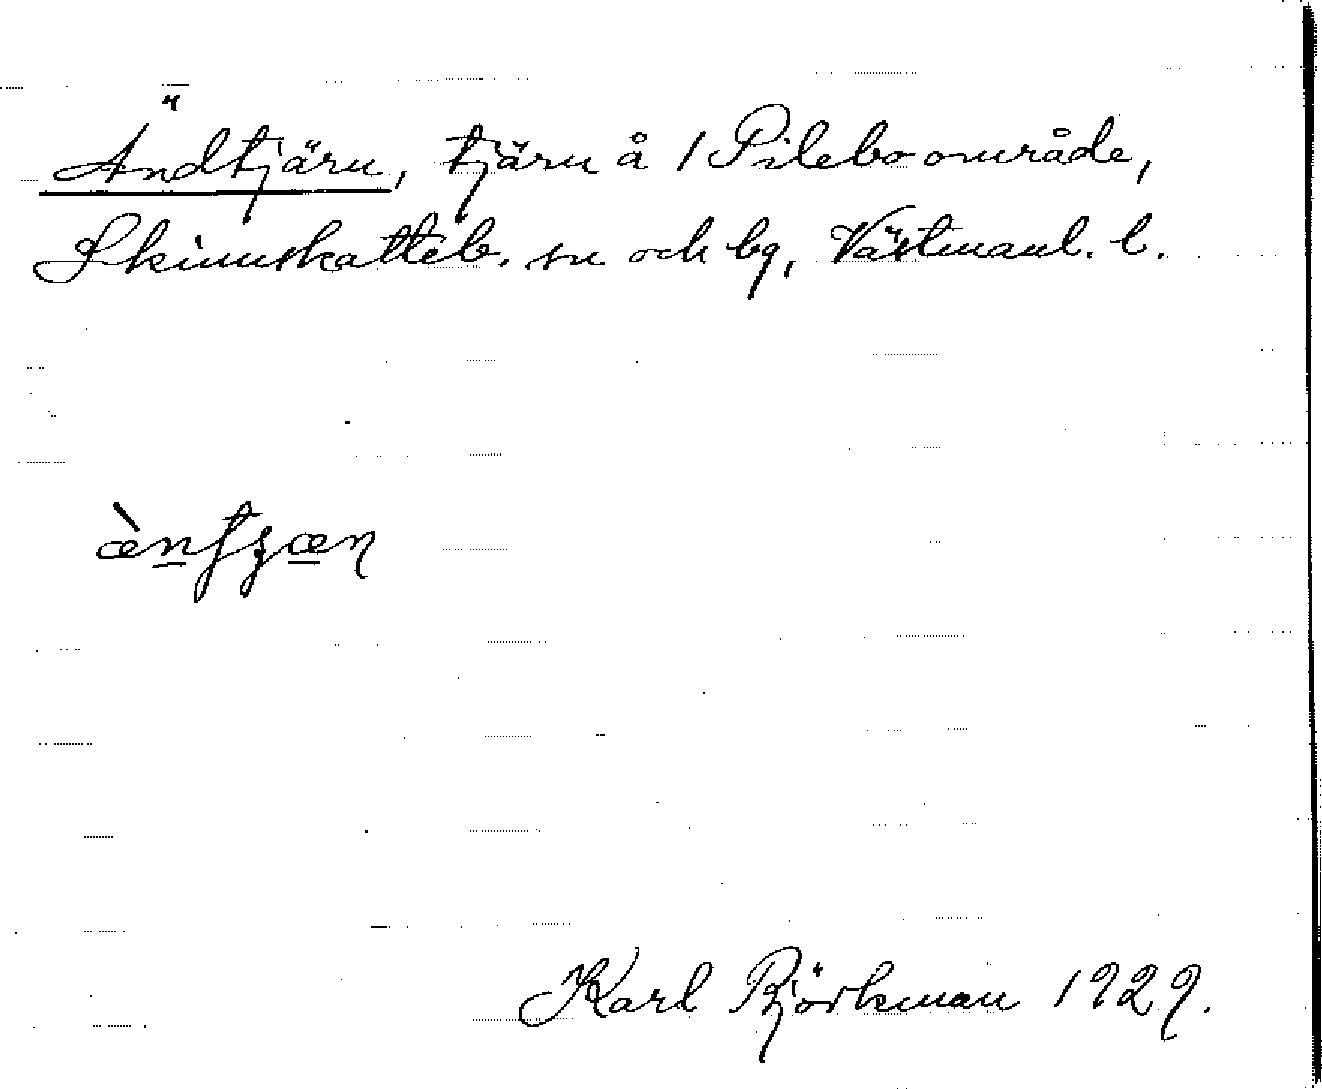 Ändtjärn, tjärn å / Pilebo område,
Skinnskatteb. sn och bg, Västmanl. l.
Karl Björkman 1929.